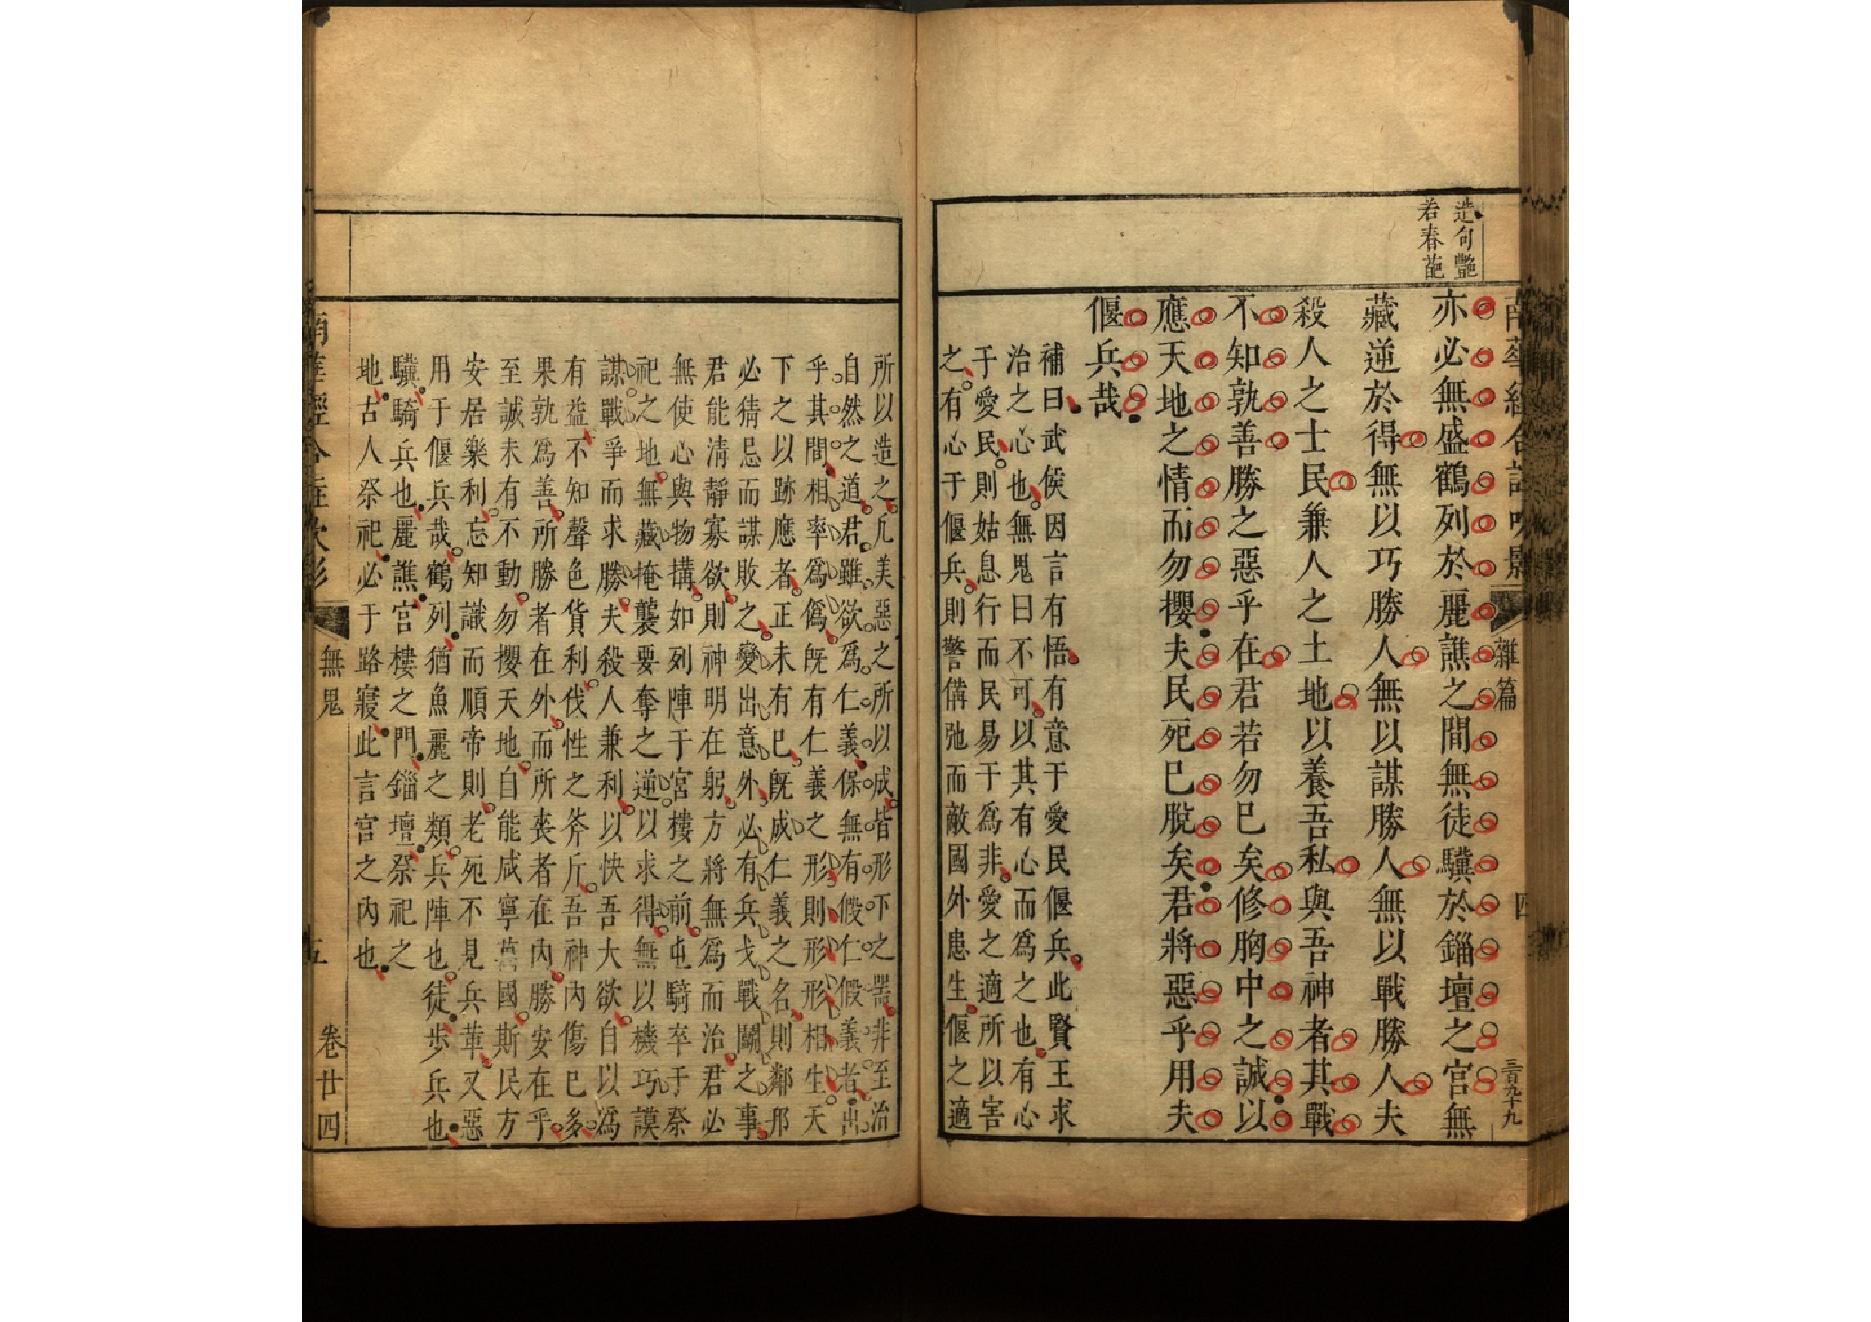 造句艷
若春葩
雜篇
四
三百九十九
亦必無盛鶴列於麗譙之間無徒驥於錙壇之宮無
藏逆於得無以巧勝人無以謀勝人無以戰勝人夫
殺人之士民兼人之土地以養吾私與吾神者其戰
不知孰善勝之惡乎在君若勿已矣修胸中之誠以
應天地之情而勿攖夫民死已脫矣君將惡乎用夫
偃兵哉
補曰武侯因言有悟有意于愛民偃兵此賢王求
治之心也無鬼曰不可以其有心而為之也有心
于愛民則姑息行而民易干為非愛之適所以害
之有心于偃兵則警備弛而敵國外患生偃之適
所以造之凡美惡之所以成皆形下之器非至治
自然之道君雖欲為仁義保無有假仁假義者出
乎其間相率為偽既有仁義之形則形形相生天
下之以跡應者正未有已既成仁義之名則鄰邦
必猜忌而謀敗之變出意外必有兵戈戰鬬之事
君能清靜寡欲則神明在躬方將無為而治君必
無使心與物搆如列陣于宮樓之前屯騎卒于祭
祀之地無藏掩襲要奪之逆以求得無以機巧謨
謀戰爭而求勝夫殺人兼利以快吾大欲自以為
有益不知聲色貨利伐性之斧斤吾神內傷已多
果孰為善所勝者在外而所喪者在內勝安在乎
至誠未有不動勿攖天地自能咸寧萬國斯民方
安居樂利忘知識而順帝則老死不見兵革又惡
用于偃兵哉鶴列猶魚麗之類兵陣也徒步兵也
驥騎兵也麗譙宮樓之門錙壇祭祀之
地古人祭祀必于路寢此言宮之內也
無鬼
五
卷廿四